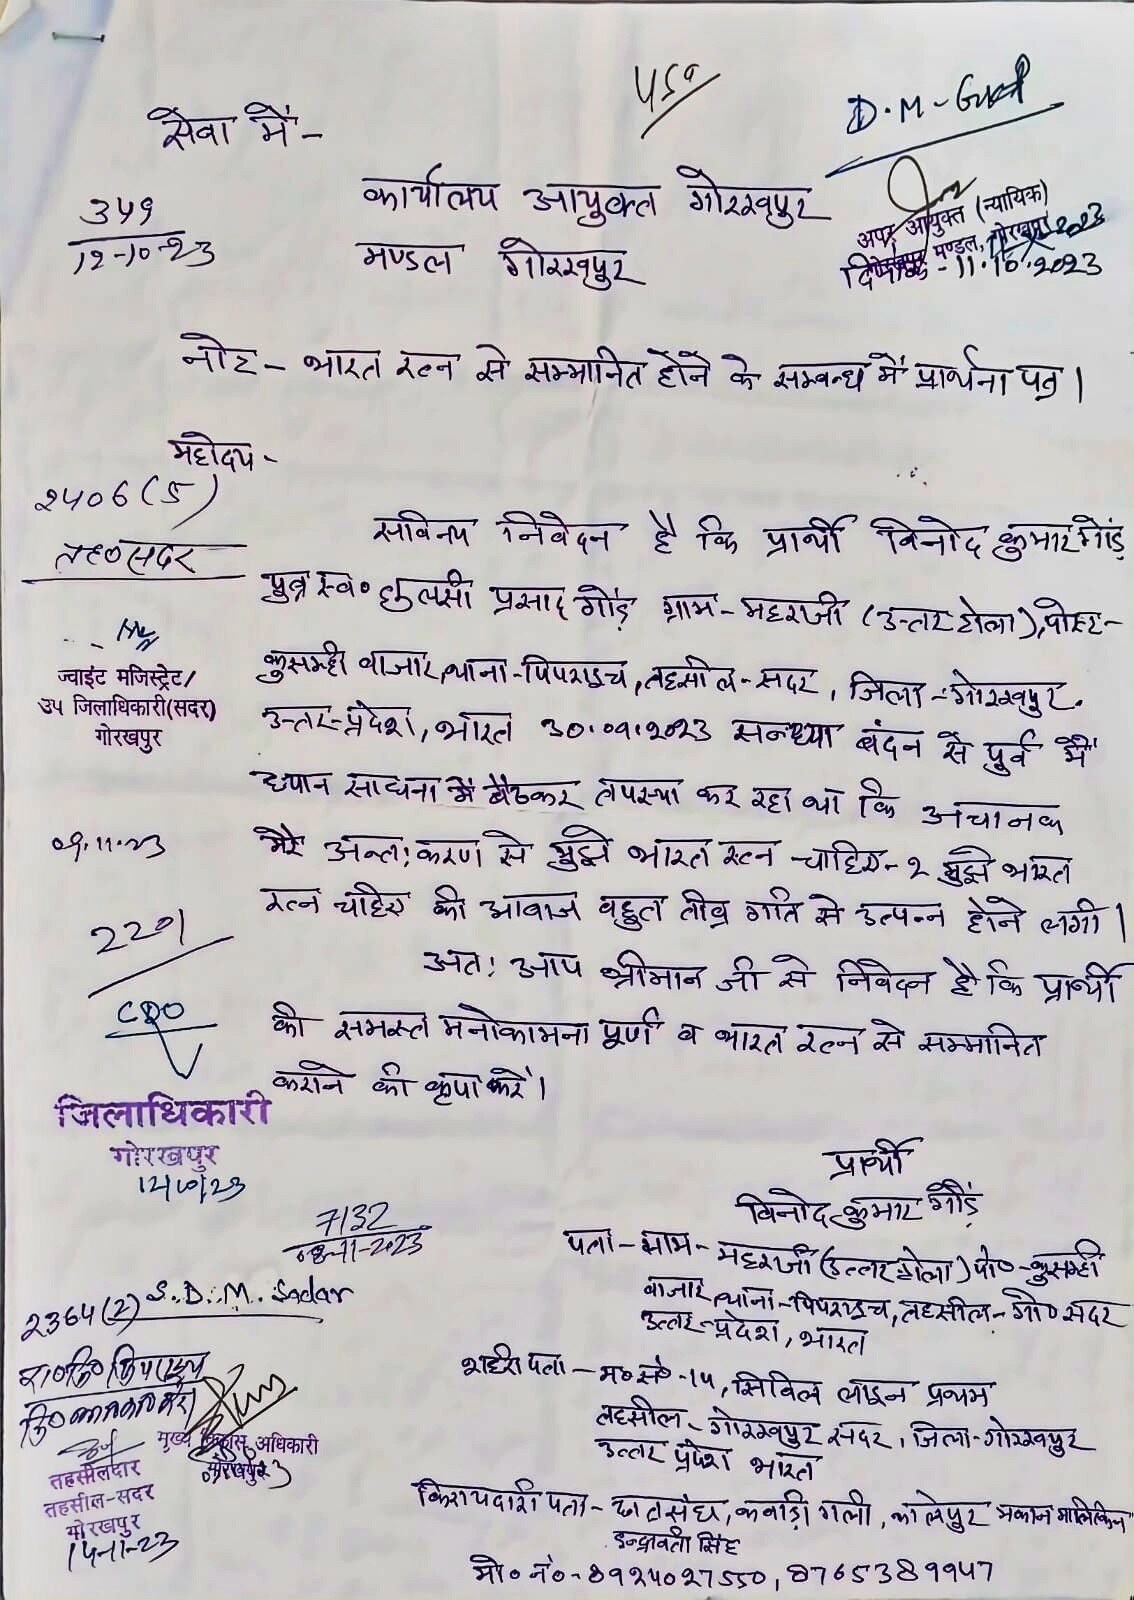 450
D.M-
सेवा में-
कार्यालय आयुक्त गोरखपुर
मण्डल गोरखपुर
349
12-10-23
अपर आयुक्त (न्यायिक)
गोरखपुर मण्डल, गोरखपुर
दिनांक-11.10.2023
नोट- भारत रत्न से सम्मानित होने के सम्बन्ध में प्रार्थना पत्र।
महोदय-
2406(5)
तह०सदर
सविनय निवेदन है कि प्रार्थी विनोद कुमार गौंड़
पुत्र स्व० तुलसी प्रसाद गौंड़ ग्राम-महराजी (उत्तर टोला), पोस्ट-
कुसम्ही बाजार, थाना-पिपराइच, तहसील-सदर, जिला-गोरखपुर.
उत्तर-प्रदेश, भारत 30.09.2023 सन्ध्या बंदन से पूर्व में
ध्यान साधना में बैठकर तपस्या कर रहा था कि अचानक
मेरे अन्त:करण से मुझे भारत रत्न चाहिए-२ मुझे भारत
रत्न चाहिए की आवाज बहुत तीव्र गति से उत्पन्न होने लगी।
अत: आप श्रीमान जी से निवेदन है कि प्रार्थी
की समस्त मनोकामना पूर्ण व भारत रत्न से सम्मानित
कराने की कृपा करें।
ज्वाइंट मजिस्ट्रेट/
उप जिलाधिकारी(सदर)
गोरखपुर
09.11.23
2201
CDO
जिलाधिकारी
गोरखपुर
12/10/23
7132
08-11-2023
2364(2) S.D.M. Sadar
मुख्य विकास अधिकारी
गोरखपुर
तहसीलदार
तहसील-सदर
गोरखपुर
14-11-23
प्रार्थी
विनोद कुमार गौंड़
पता-ग्राम-महराजी (उत्तर टोला) पो०-कुसम्ही
बाजार, थाना-पिपराइच, तहसील-गो० सदर
उत्तर-प्रदेश, भारत
शहरी पता-म० सं०-14, सिविल लाइन प्रथम
तहसील-गोरखपुर सदर, जिला-गोरखपुर
उत्तर प्रदेश भारत
किरायदारी पता- कवाड़ी गली, मकान मालिकिन
इन्द्रावती सिंह
मो० नं०-8924027550, 8765389947